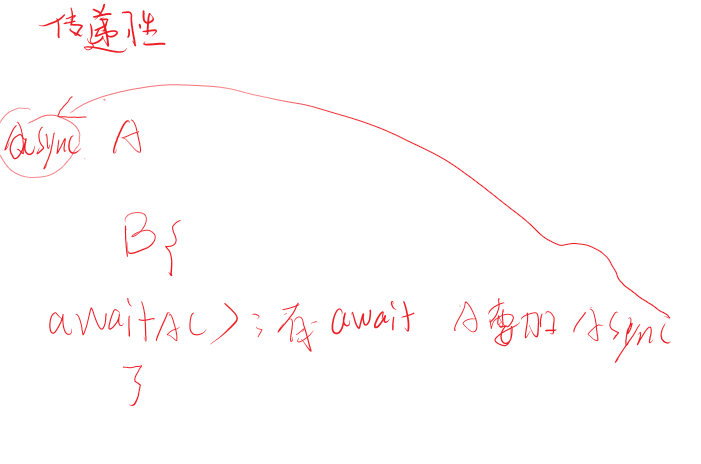 传递性
async A
B{
await A();有await A要加Async
}